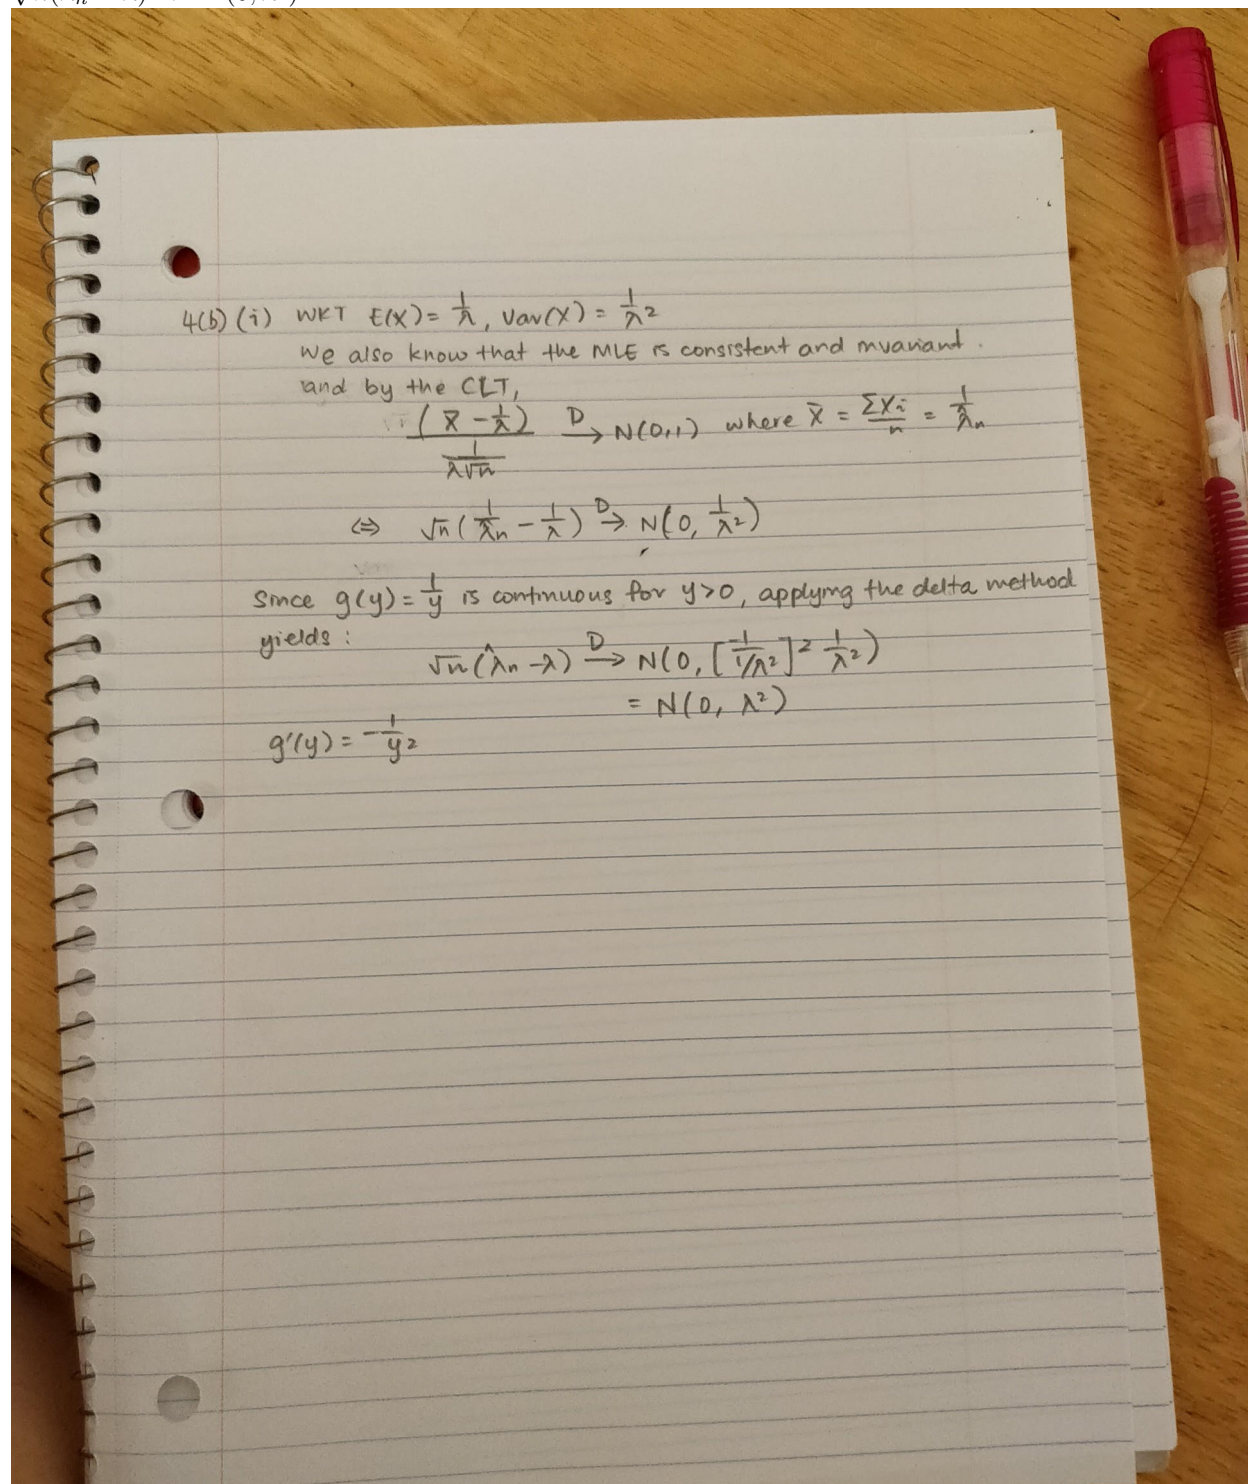 4(b) (i) WKT E(X) = 1/λ, Var(X) = 1/λ²
We also know that the MLE is consistent and invariant.
and by the CLT,
(X̄ - 1/λ) / (1/(λ√n)) →ᴰ N(0,1) where X̄ = ΣXi/n = 1/λ̂n
⇔ √n(1/λ̂n - 1/λ) →ᴰ N(0, 1/λ²)
Since g(y) = 1/y is continuous for y>0, applying the delta method
yields:
√n(λ̂n - λ) →ᴰ N(0, [-1/(1/λ²)]² 1/λ²)
= N(0, λ²)
g'(y) = -1/y²